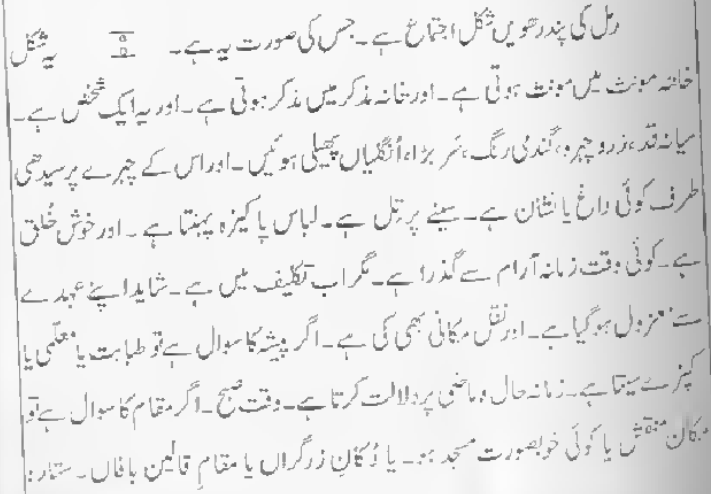 رمل کی پندرھویں شکل اجتماع ہے۔ جس کی صورت یہ ہے۔ یہ شکل
خانہ مونث میں مونث ہوتی ہے۔ اور خانہ مذکر میں مذکر ہوتی ہے۔ اور یہ ایک شخص ہے۔
میانہ قد، زرد چہرہ، گندمی رنگ، سر بڑا، اُنگلیاں پھیلی ہوئیں۔ اور اس کے چہرے پر سیدھی
طرف کوئی داغ یا نشان ہے۔ سینے پر تِل ہے۔ لباس پاکیزہ پہنتا ہے۔ اور خوش خُلق
ہے۔ کوئی وقت زمانہ آرام سے گذرا ہے۔ مگر اب تکلیف میں ہے۔ شاید اپنے عہدے
سے معزول ہو گیا ہے۔ اور نقل مکانی بھی کی ہے۔ اگر پیشہ کا سوال ہے تو طبابت یا معلّمی یا
کپڑے سیتا ہے۔ زمانہ حال و ماضی پر دلالت کرتا ہے۔ وقت صبح۔ اگر مقام کا سوال ہے تو
مکان منقش یا کوئی خوبصورت مسجد ہو۔ یا دُکانِ زرگراں یا مقامِ قالین بافاں۔ ستارہ